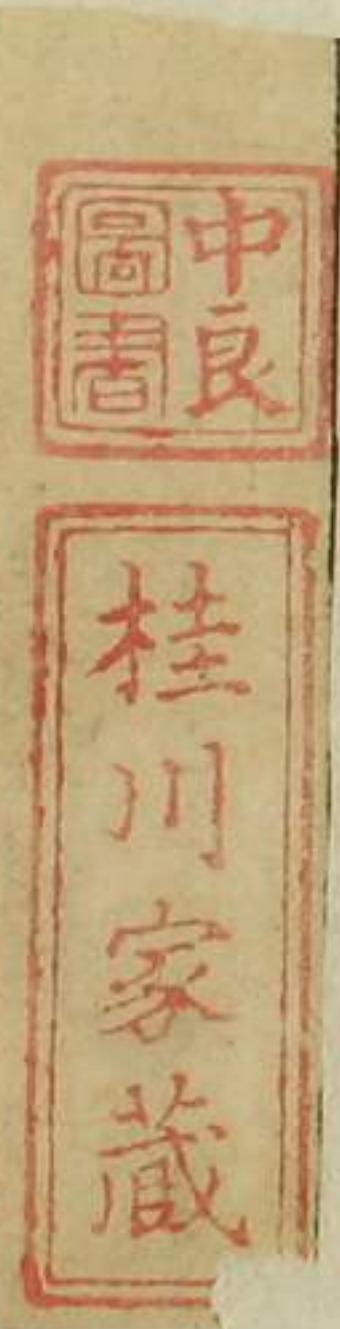 中良
圖書
桂川家蔵